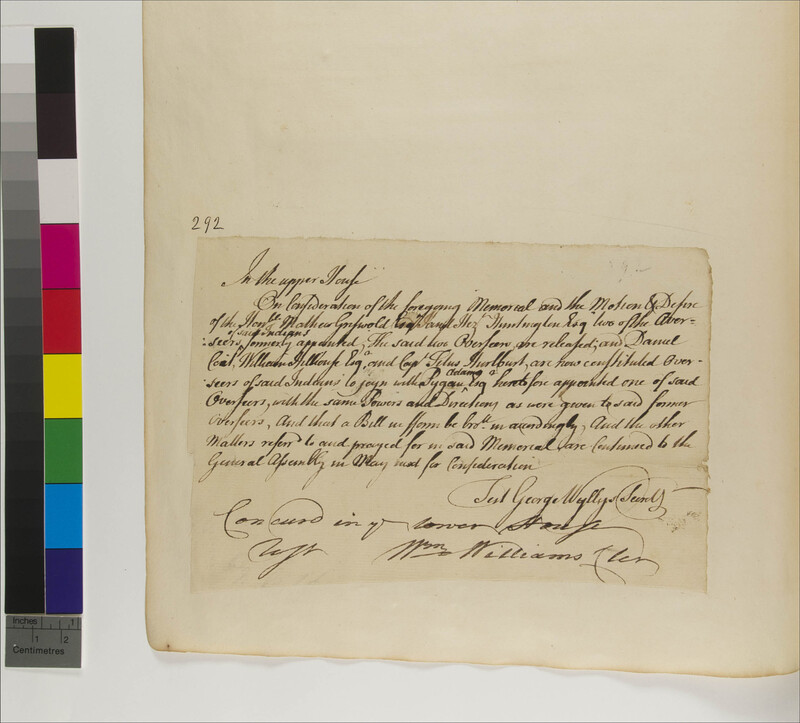 292
In the upper House
On Consideration of the foregoing Memorial and the Motion & Desire
of the Honble Mathew Griswold Esqr and Hezh Huntington Esqr two of the Over-
of said Indians
seers formerly appointed, The said two Overseers are released, and Daniel
Coit, William Hillhouse Esqrs and Capt Titus Hurlburt, are now constituted Over-
seers of said Indians to joyn with Pygan Adams Esq heretofore appointed one of said
Overseers, with the same Powers and Directions as were given to said former
Overseers, And that a Bill in fform be brot in accordingly, And the other
Matters referrd to and prayed for in said Memorial, are Continued to the
General Assembly in May next for Consideration
Test George Wyllys Secrety
Concurd in ye lower House
Test Wm Williams Cler
Inches 1
1 2
Centimetres